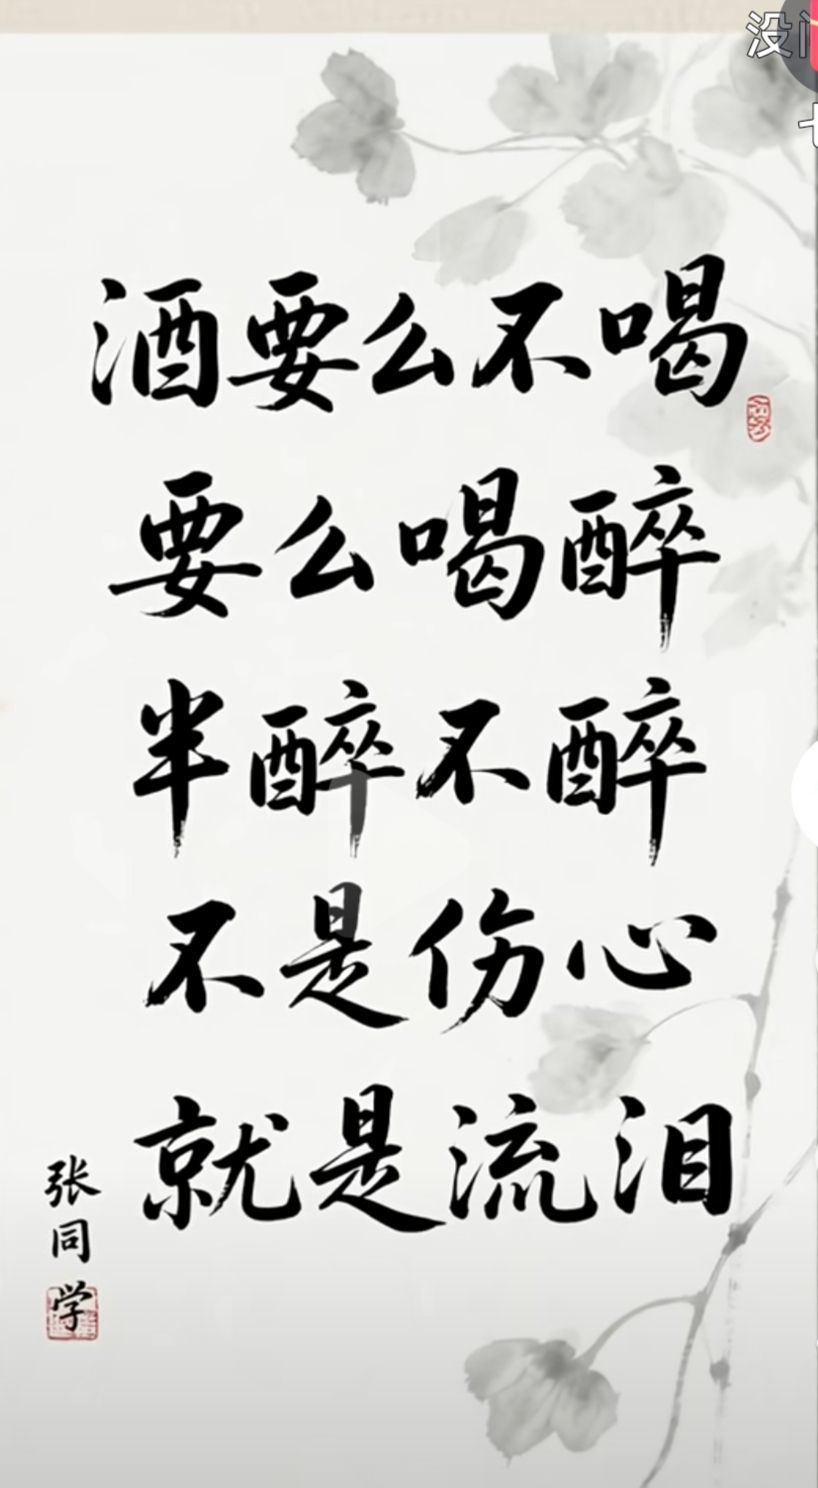 酒要么不喝
要么喝醉
半醉不醉
不是伤心
就是流泪
张同学
没
七